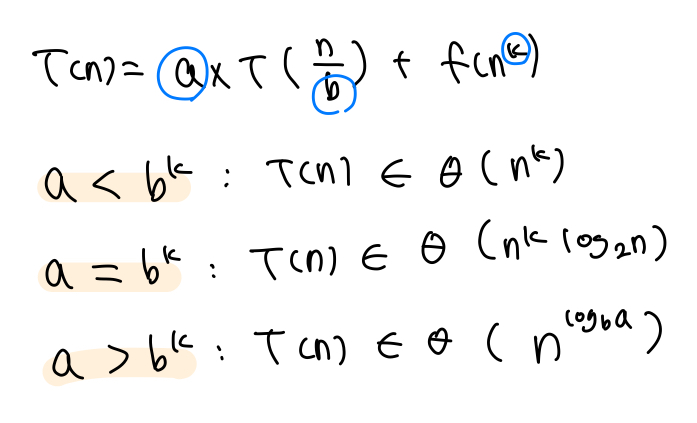 T(n) = a × T(n/b) + f(n^k)
a < b^k : T(n) ∈ θ(n^k)
a = b^k : T(n) ∈ θ(n^k log₂n)
a > b^k : T(n) ∈ θ(n^(log_b a))